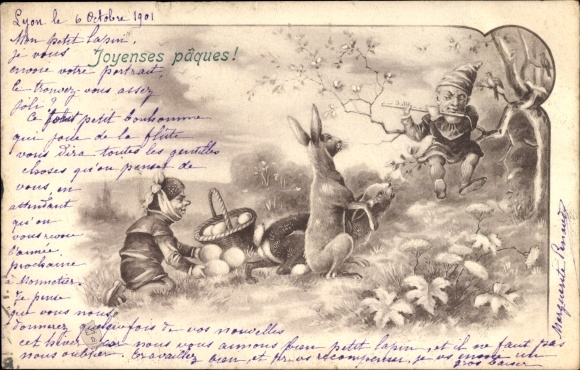 Lyon le 6 Octobre 1901
Mon petit lapin,
Joyeuses pâques!
je vous
envoie votre portrait,
le trouvez-vous assez
joli?
Ce petit bonhomme
qui joue de la flûte
vous dira toutes les gentilles
choses qu'on pense de
vous, en
attendant
qu'on
vous revoie
l'année
prochaine
à
Je pense
que vous nous
donnerez quelquefois de vos nouvelles
cet hiver, car nous vous aimons bien petit lapin, et il ne faut pas
nous oublier. travaillez bien, et pr vs recompenser, je vs envoie un
gros baiser
Marguerite